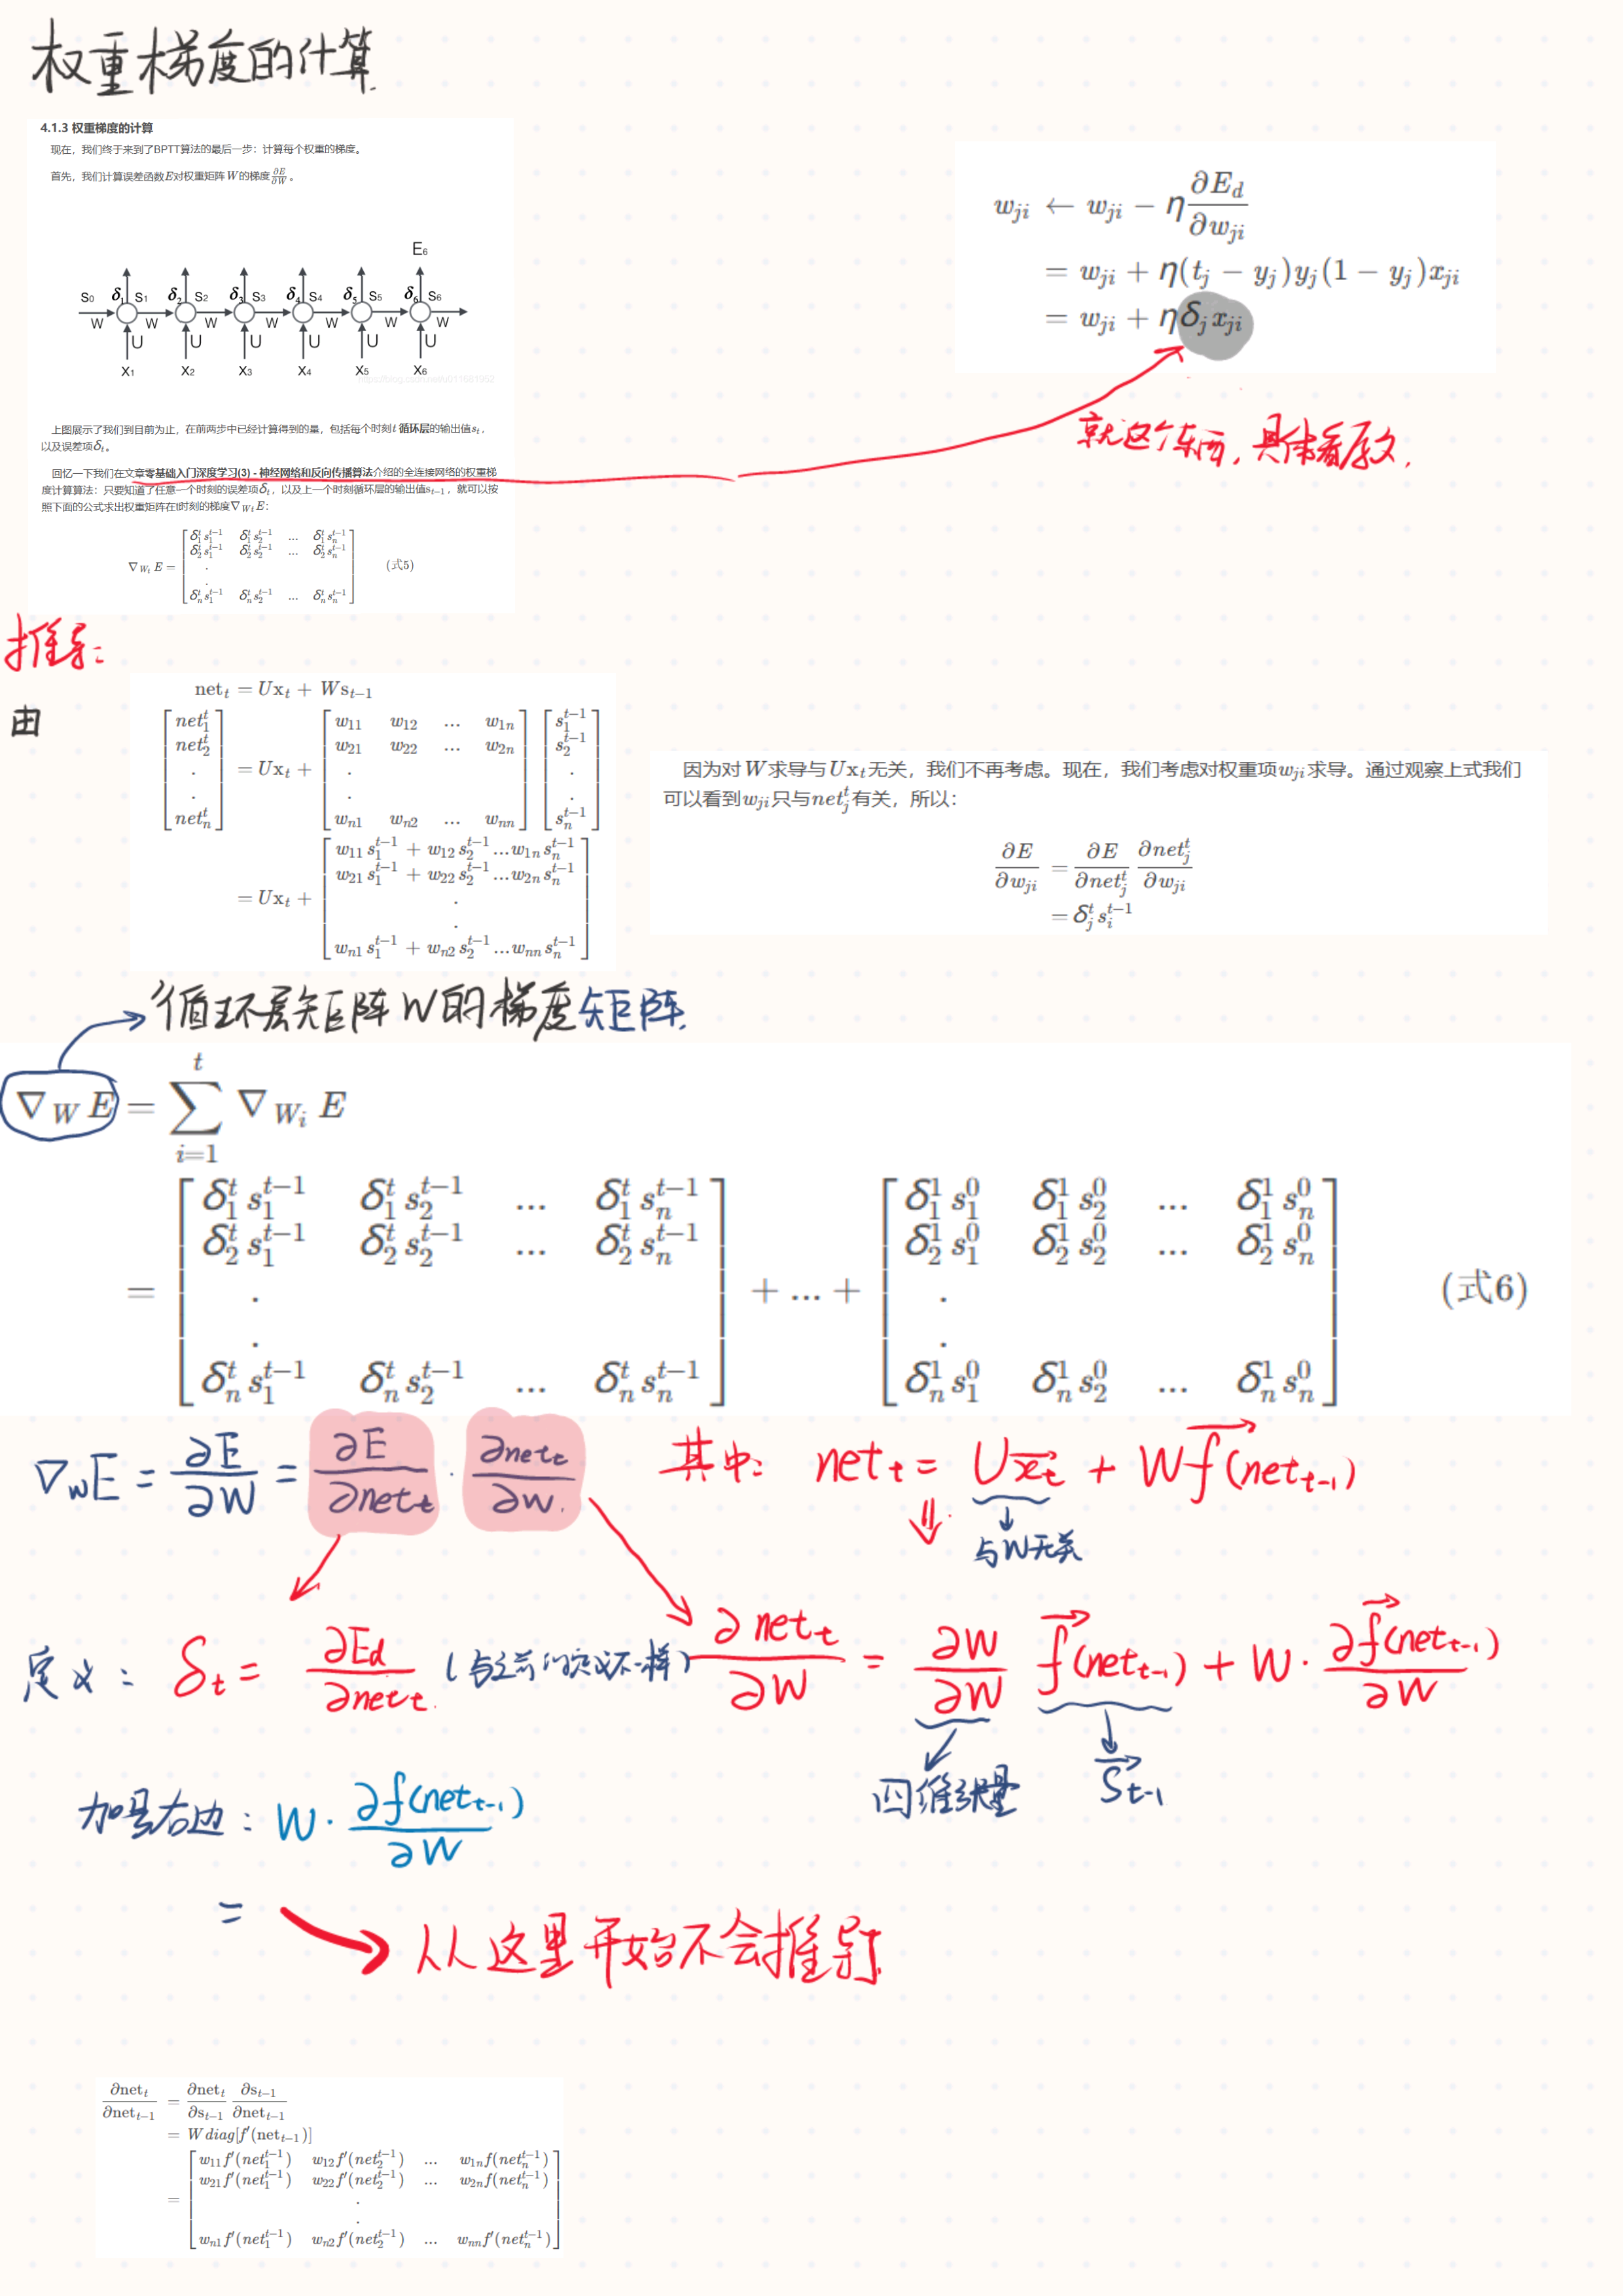 权重梯度的计算.
4.1.3 权重梯度的计算
现在，我们终于来到了BPTT算法的最后一步：计算每个权重的梯度。
首先，我们计算误差函数E对权重矩阵W的梯度∂E/∂W。
E6
S0 δ1 S1 δ2 S2 δ3 S3 δ4 S4 δ5 S5 δ6 S6
W W W W W W W
U U U U U U
X1 X2 X3 X4 X5 X6
上图展示了我们到目前为止，在前两步中已经计算得到的量，包括每个时刻t 循环层的输出值s_t，
以及误差项δ_t。
回忆一下我们在文章零基础入门深度学习(3) - 神经网络和反向传播算法介绍的全连接网络的权重梯
度计算算法：只要知道了任意一个时刻的误差项δ_t，以及上一个时刻循环层的输出值s_{t-1}，就可以按
照下面的公式求出权重矩阵在t时刻的梯度∇_{Wt}E：
∇_{Wt} E = [δ_1^t s_1^{t-1} δ_1^t s_2^{t-1} ... δ_1^t s_n^{t-1}
δ_2^t s_1^{t-1} δ_2^t s_2^{t-1} ... δ_2^t s_n^{t-1}
.
.
δ_n^t s_1^{t-1} δ_n^t s_2^{t-1} ... δ_n^t s_n^{t-1}] (式5)
w_{ji} ← w_{ji} − η ∂E_d/∂w_{ji}
= w_{ji} + η(t_j − y_j)y_j(1 − y_j)x_{ji}
= w_{ji} + ηδ_j x_{ji}
就这个东西，具体看原文.
推导：
由
net_t = Ux_t + Ws_{t-1}
[net_1^t net_2^t . . net_n^t] = Ux_t + [w_{11} w_{12} ... w_{1n}
w_{21} w_{22} ... w_{2n}
.
.
w_{n1} w_{n2} ... w_{nn}] [s_1^{t-1} s_2^{t-1} . . s_n^{t-1}]
= Ux_t + [w_{11}s_1^{t-1} + w_{12}s_2^{t-1}...w_{1n}s_n^{t-1}
w_{21}s_1^{t-1} + w_{22}s_2^{t-1}...w_{2n}s_n^{t-1}
.
.
w_{n1}s_1^{t-1} + w_{n2}s_2^{t-1}...w_{nn}s_n^{t-1}]
因为对W求导与Ux_t无关，我们不再考虑。现在，我们考虑对权重项w_{ji}求导。通过观察上式我们
可以看到w_{ji}只与net_j^t有关，所以：
∂E/∂w_{ji} = ∂E/∂net_j^t ∂net_j^t/∂w_{ji}
= δ_j^t s_i^{t-1}
循环层矩阵W的梯度矩阵.
∇_W E = ∑_{i=1}^t ∇_{Wi} E
= [δ_1^t s_1^{t-1} δ_1^t s_2^{t-1} ... δ_1^t s_n^{t-1}
δ_2^t s_1^{t-1} δ_2^t s_2^{t-1} ... δ_2^t s_n^{t-1}
.
.
δ_n^t s_1^{t-1} δ_n^t s_2^{t-1} ... δ_n^t s_n^{t-1}] + ... + [δ_1^1 s_1^0 δ_1^1 s_2^0 ... δ_1^1 s_n^0
δ_2^1 s_1^0 δ_2^1 s_2^0 ... δ_2^1 s_n^0
.
.
δ_n^1 s_1^0 δ_n^1 s_2^0 ... δ_n^1 s_n^0] (式6)
∇_W E = ∂E/∂W = ∂E/∂net_t · ∂net_t/∂w.
其中: net_t = Ux⃗_t + Wf⃗(net_{t-1})
与W无关
定义: δ_t = ∂E_d/∂net_t. (与之前的定义不一样)
∂net_t/∂W = ∂W/∂W f⃗(net_{t-1}) + W · ∂f⃗(net_{t-1})/∂W
四维张量 S⃗_{t-1}
加号右边: W · ∂f(net_{t-1})/∂W
=
从从这里开始不会推导.
∂net_t/∂net_{t-1} = ∂net_t/∂s_{t-1} ∂s_{t-1}/∂net_{t-1}
= W diag[f′(net_{t-1})]
= [w_{11}f′(net_1^{t-1}) w_{12}f′(net_2^{t-1}) ... w_{1n}f(net_n^{t-1})
w_{21}f′(net_1^{t-1}) w_{22}f′(net_2^{t-1}) ... w_{2n}f(net_n^{t-1})
.
.
w_{n1}f′(net_1^{t-1}) w_{n2}f′(net_2^{t-1}) ... w_{nn}f′(net_n^{t-1})]